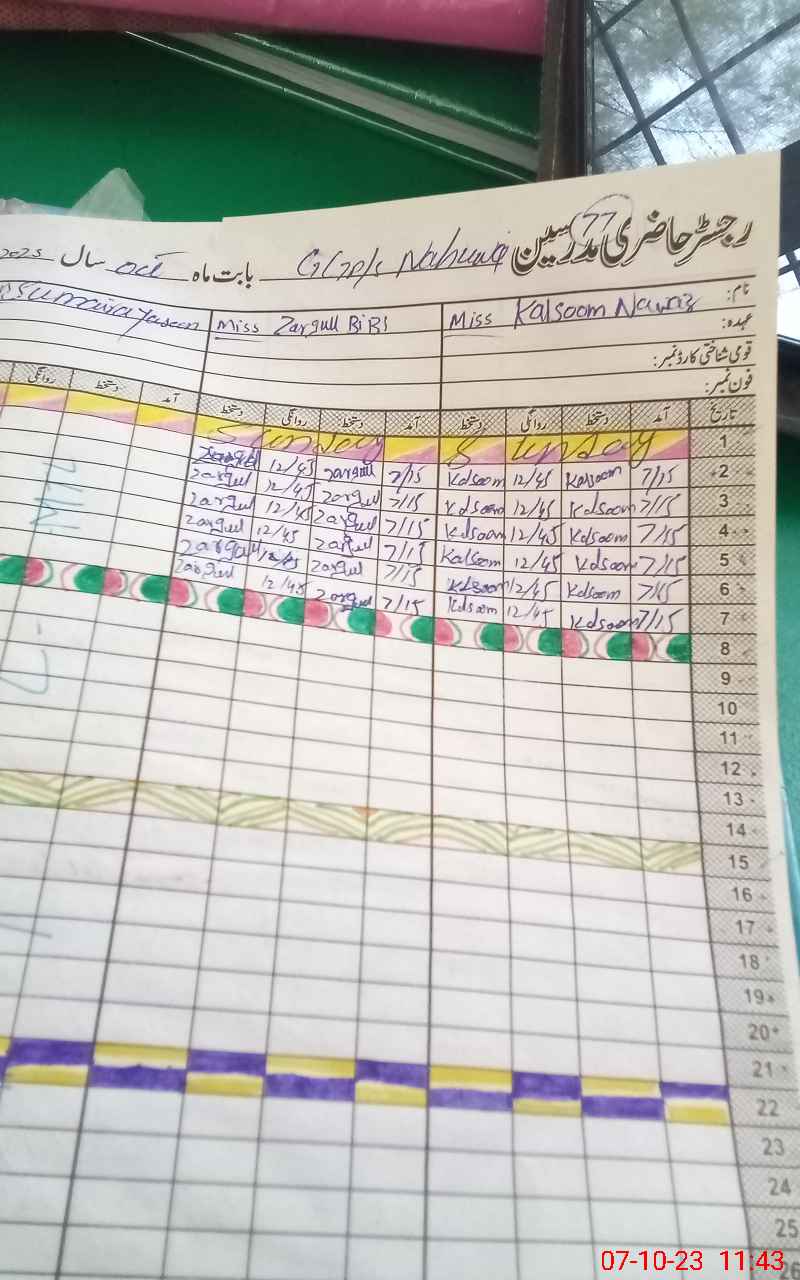 رجسٹر حاضری مدرسین
77
بابت ماہ Oct سال 2023
نام: Miss Kalsoom Nawaz Miss Zargull BiBi Sumaira Yaseen
عہدہ:
قومی شناختی کارڈ نمبر:
فون نمبر:
تاریخ آمد دستخط روانگی دستخط آمد دستخط روانگی دستخط آمد دستخط روانگی
1 Sunday Sunday
2 7/15 Kalsoom 12/45 Kalsoom 7/15 Zargull 12/45 Zargull
3 7/15 Kalsoom 12/45 Kalsoom 7/15 Zargull 12/45 Zargull
4 7/15 Kalsoom 12/45 Kalsoom 7/15 Zargull 12/45 Zargull
5 7/15 Kalsoom 12/45 Kalsoom 7/15 Zargull 12/45 Zargull
6 7/15 Kalsoom 12/45 Kalsoom 7/15 Zargull 12/45 Zargull
7 7/15 Kalsoom 12/45 Kalsoom 7/15 Zargull 12/45 Zargull
8
9
10
11
12
13
14
15
16
17
18
19
20
21
22
23
24
25
26
07-10-23 11:43